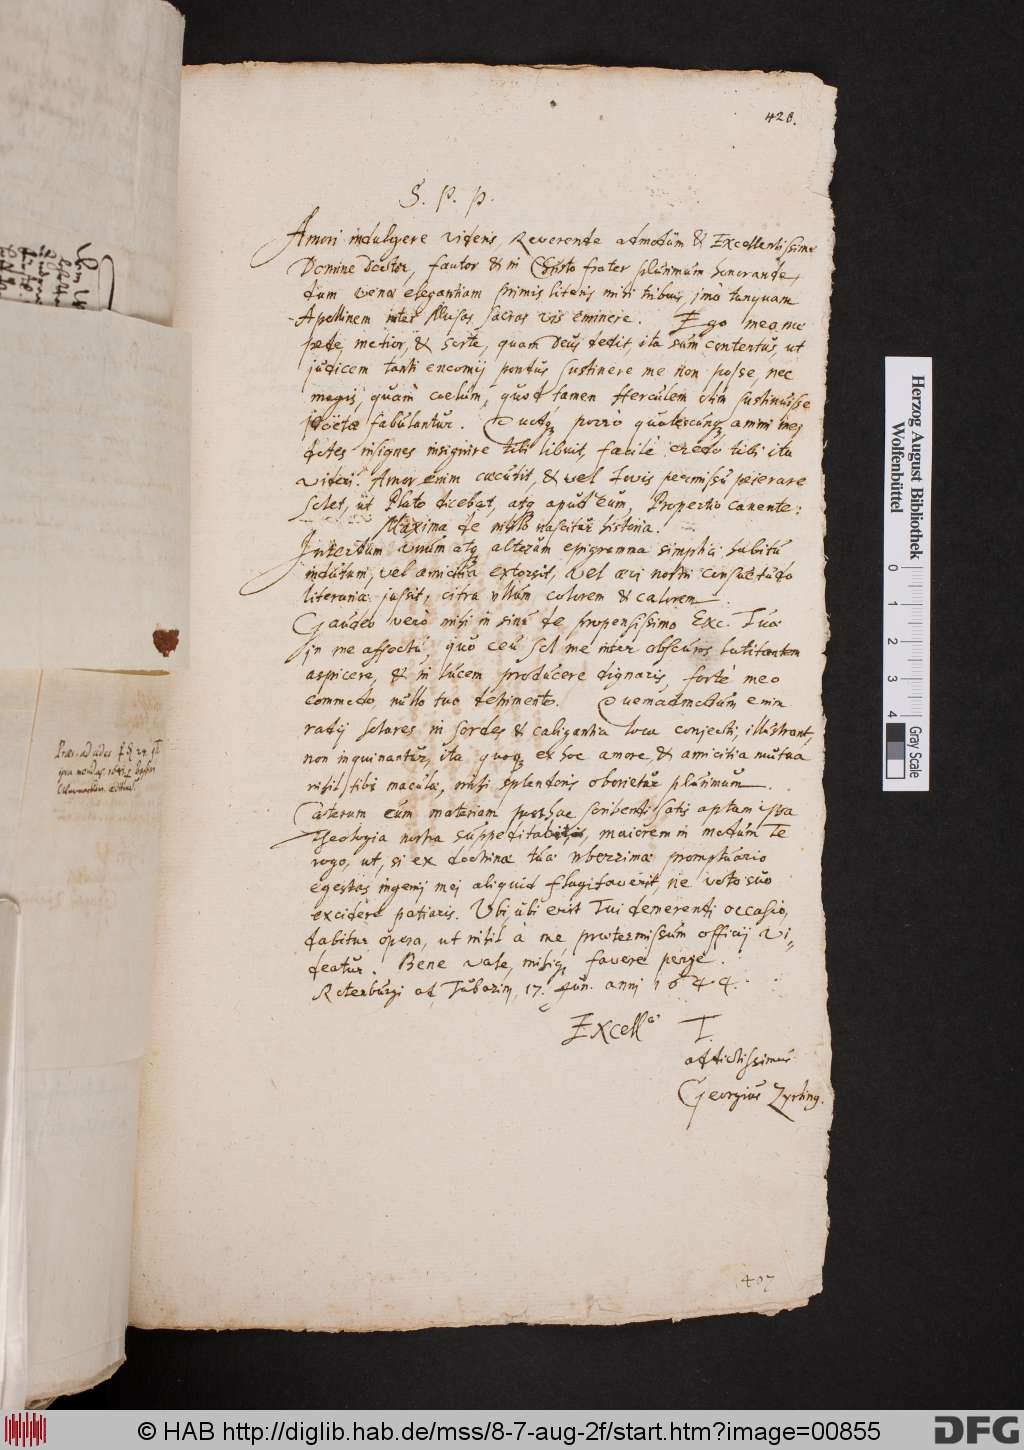 426.
S. P. P.
Amori indulgere videris Reverende admodum & Excellentissime
Domine Doctor, fautor & in Christo frater plurimum honorande,
dum venae elegantiam primis literis mihi tribuis, imò tanquam
Apollinem inter Musas sacras vis eminere. Ego meo me
pede metior, & sorte, quam Deus dedit, ita sum contentus, ut
judicem tanti encomij pondus sustinere me non posse, nec
magis, quàm coelum, quod tamen Herculem olim sustinuisse
Poëtae fabulantur. Quotq; porrò qualescunq; animi mej
dotes insignes insignire tibi libuit, facilè credo tibi ita
videri. Amor enim caecutit, & vel Jovis permissu peierare
solet, ut Plato dicebat, atq; apud eum, Propertio canente:
Maxima de nihilo nascitur historia.
Interdum unum atq; alterum epigramma simplici habitu
indutum, vel amicitia extorsit, vel aevi nostri consuetudo
literaria jussit, citra ullum colorem & calorem.
Gaudeo verò mihi in sinu de propensissimo Exc. Tuae
in me affectu, quo ceu Sol me inter obscuros latitantem
aspicere, & in lucem producere dignaris, fortè meo
commodo, nullo tuo detrimento. Quemadmodum enim
radij solares in sordes & caligantia loca conjecti, illustrant,
non inquinantur, ita quoq; ex hoc amore, & amicitia mutua
nihil tibi maculae, mihi splendoris oborietur plurimum.
Caeterum cùm materiam scribendi satis aptam ipsa
Theologia nostra maiorem in modum Te
rogo, ut, si ex doctrinae tuae uberrimae promptuario
egestas ingenij mej aliquid flagitaverit, ne voto suo
excidere patiaris. Ubi ubi erit Tui demerendi occasio,
dabitur opera, ut nihil à me praetermissum officij vi-
deatur. Bene vale, mihiq; favere perge.
Rotenburgi ad Tubarim, 17. Jun. anni 1644.
Excell.ae T.
addictissimus
Georgius Zyrling.
407
Herzog August Bibliothek
Wolfenbüttel
0 1 2 3 4
Gray Scale
© HAB http://diglib.hab.de/mss/8-7-aug-2f/start.htm?image=00855
DFG